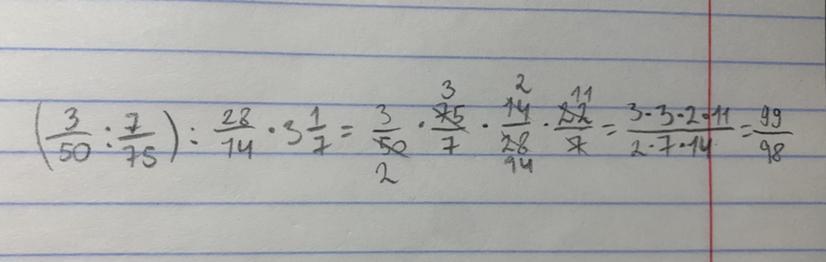 (3/50 : 7/75) : 28/14 · 3 1/7 = 3/50 · 75/7 · 14/28 · 22/7 = 3·3·2·11/2·7·14 = 99/98
3 2 11
2 14